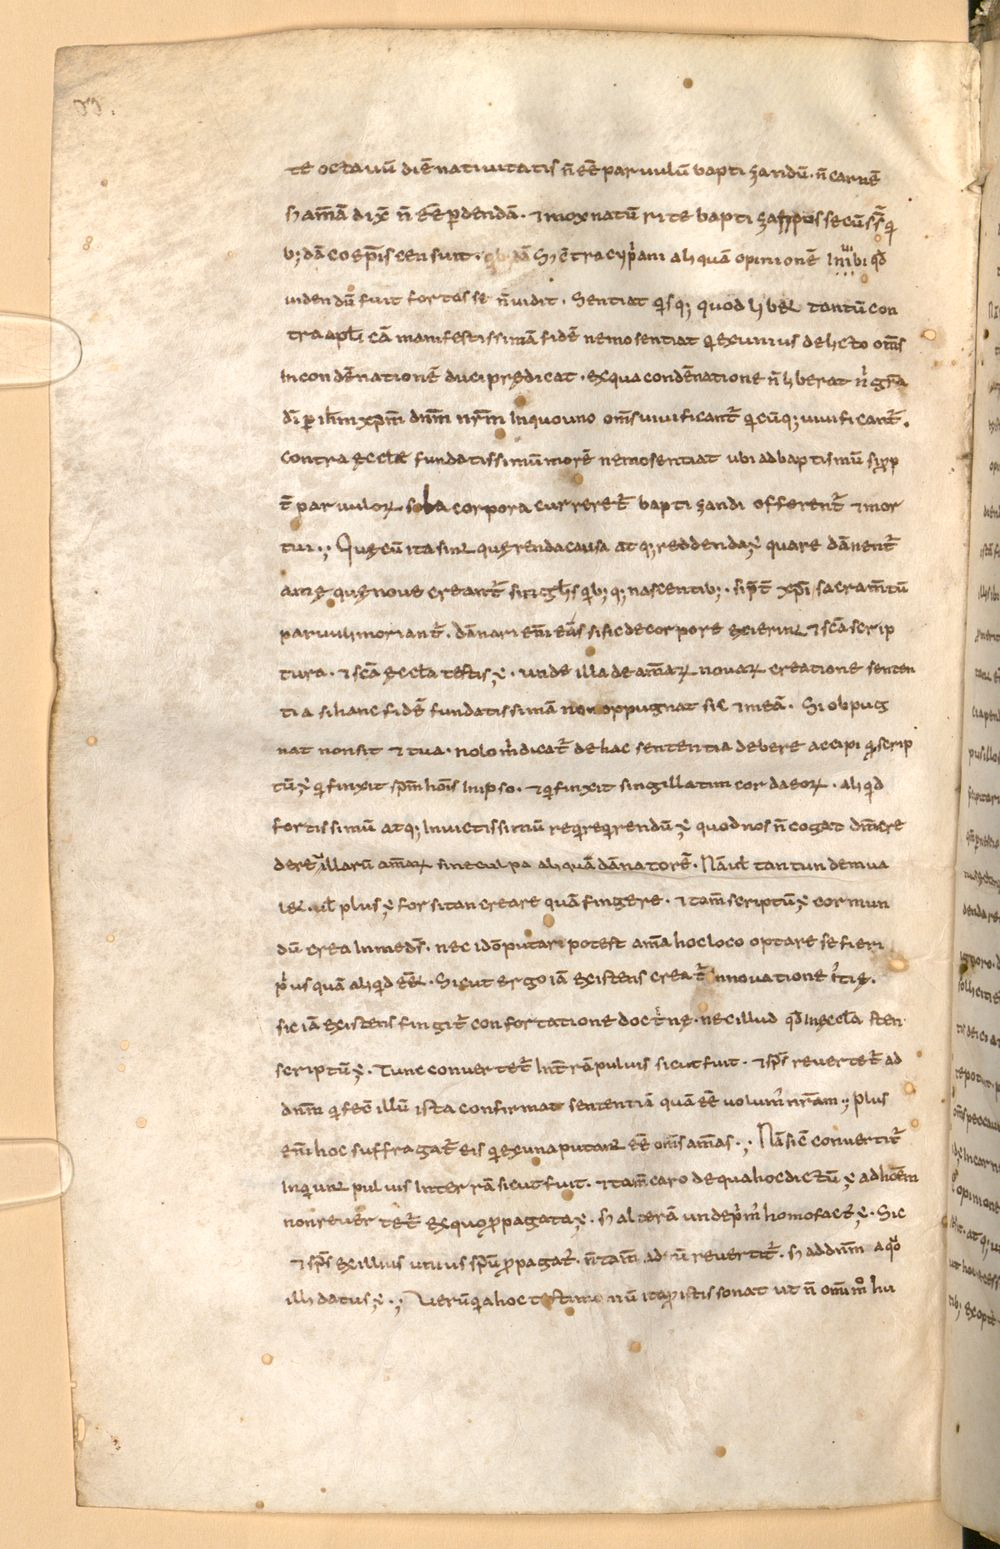 te octauū diē natiuitatis n̄ eē paruulū baptizandū. n̄ carnē
s; am̄ā dix̄ n̄ eē p̱dendā. & mox natū rite baptizari posse cū
b; dā coep̄is censuit. Sic̄ ctra cyp̄ani aliquā opinionē ubi qđ
uidendū fuit fortasse n̄ uidit. Sentiat q̇sq; quod lib& tantū con
tra apl̄icā manifestissimā fidē nemo sentiat q̇ ex unius delicto om̄s
in condēnationē duci predicat. ex qua condēnatione n̄ liberat n̄ gr̄a
dī p̱ ih̄m xp̄m dn̄m nr̄m in quo uno om̄s uiuificant̄ q̇cūq; uiuificant̄.
contra eccl̄ę fundatissimū morē nemo sentiat ubi ad baptismū si ꝓp
t̄ paruuloꝝ sola corpora currerēt baptizandi offerent̄ & mor
tui.; Quę cū ita sin& querenda causa atq; reddenda ē quare dānent̄
animę quę nouę creant̄ singlis q̇b;q; nascentib;. si p̄t̄ xp̄i sacram̄tū
paruuli moriant̄. dānari eni eās si sic de corpore exierin& & sc̄a scrip
tura. & sc̄a eccl̄a testis ē. unde illa de am̄aꝝ nouaꝝ creatione senten
tia si hanc fidē fundatissimā non oppugnat sit & mea. Si obpug
nat non sit & tua. nolo m̄ dicat̄ de hac sententia debere accipi q̇ scrip
tū ē q̇ finxit sp̄m hoīs in ipso. & q̇ finxit singillatim corda eoꝝ. aliq̇d
fortissimū atq; inuictissimū req̇rendū ē quod nos n̄ cogat dm̄ cre
dere illarū am̄aꝝ sine culpa aliquā dānatorē. Nā ul̄ tantundem ua
l&. ul̄ plus ē forsitan creare quā fingere. & tam̄ scriptū ē cor mun
dū crea in me ds̄. nec ido putari potest am̄a hoc loco optare se fieri
p̄us quā aliq̇d eēt. Sicut ergo iā existens creat̄ innouatione
sic iā existens fingit̄ confortatione doct̄nę. nec illud qđ in eccl̄asten
scriptū ē. Tunc conuertet̄ in t̄rā puluis sicut fuit. & sp̄s reuertet̄ ad
dn̄m q̇ fec̄ illū ista confirmat sententiā quā eē uolum̄ nr̄am.; Plus
eni hoc suffragat̄ eis q̇ ex una putan& eē om̄s am̄as.; Nā sic̄ conuertit̄
inq̇un& puluis in terrā sicut fuit. & tam̄ caro de qua hoc dictū ē ad hom̄m
non reuertet̄ ex quo ꝓpagata ē. s; al terā unde p̄m̄ homo fact̄ ē. Sic
& sp̄s ex illius unius sp̄u ꝓpagat̄. n̄ tam̄ ad eū reuertit̄. s; ad dn̄m a quo
illi datus ē.; Uerū q̇a hoc testimoniū ita ꝓ istis sonat ut n̄ omnimo hui